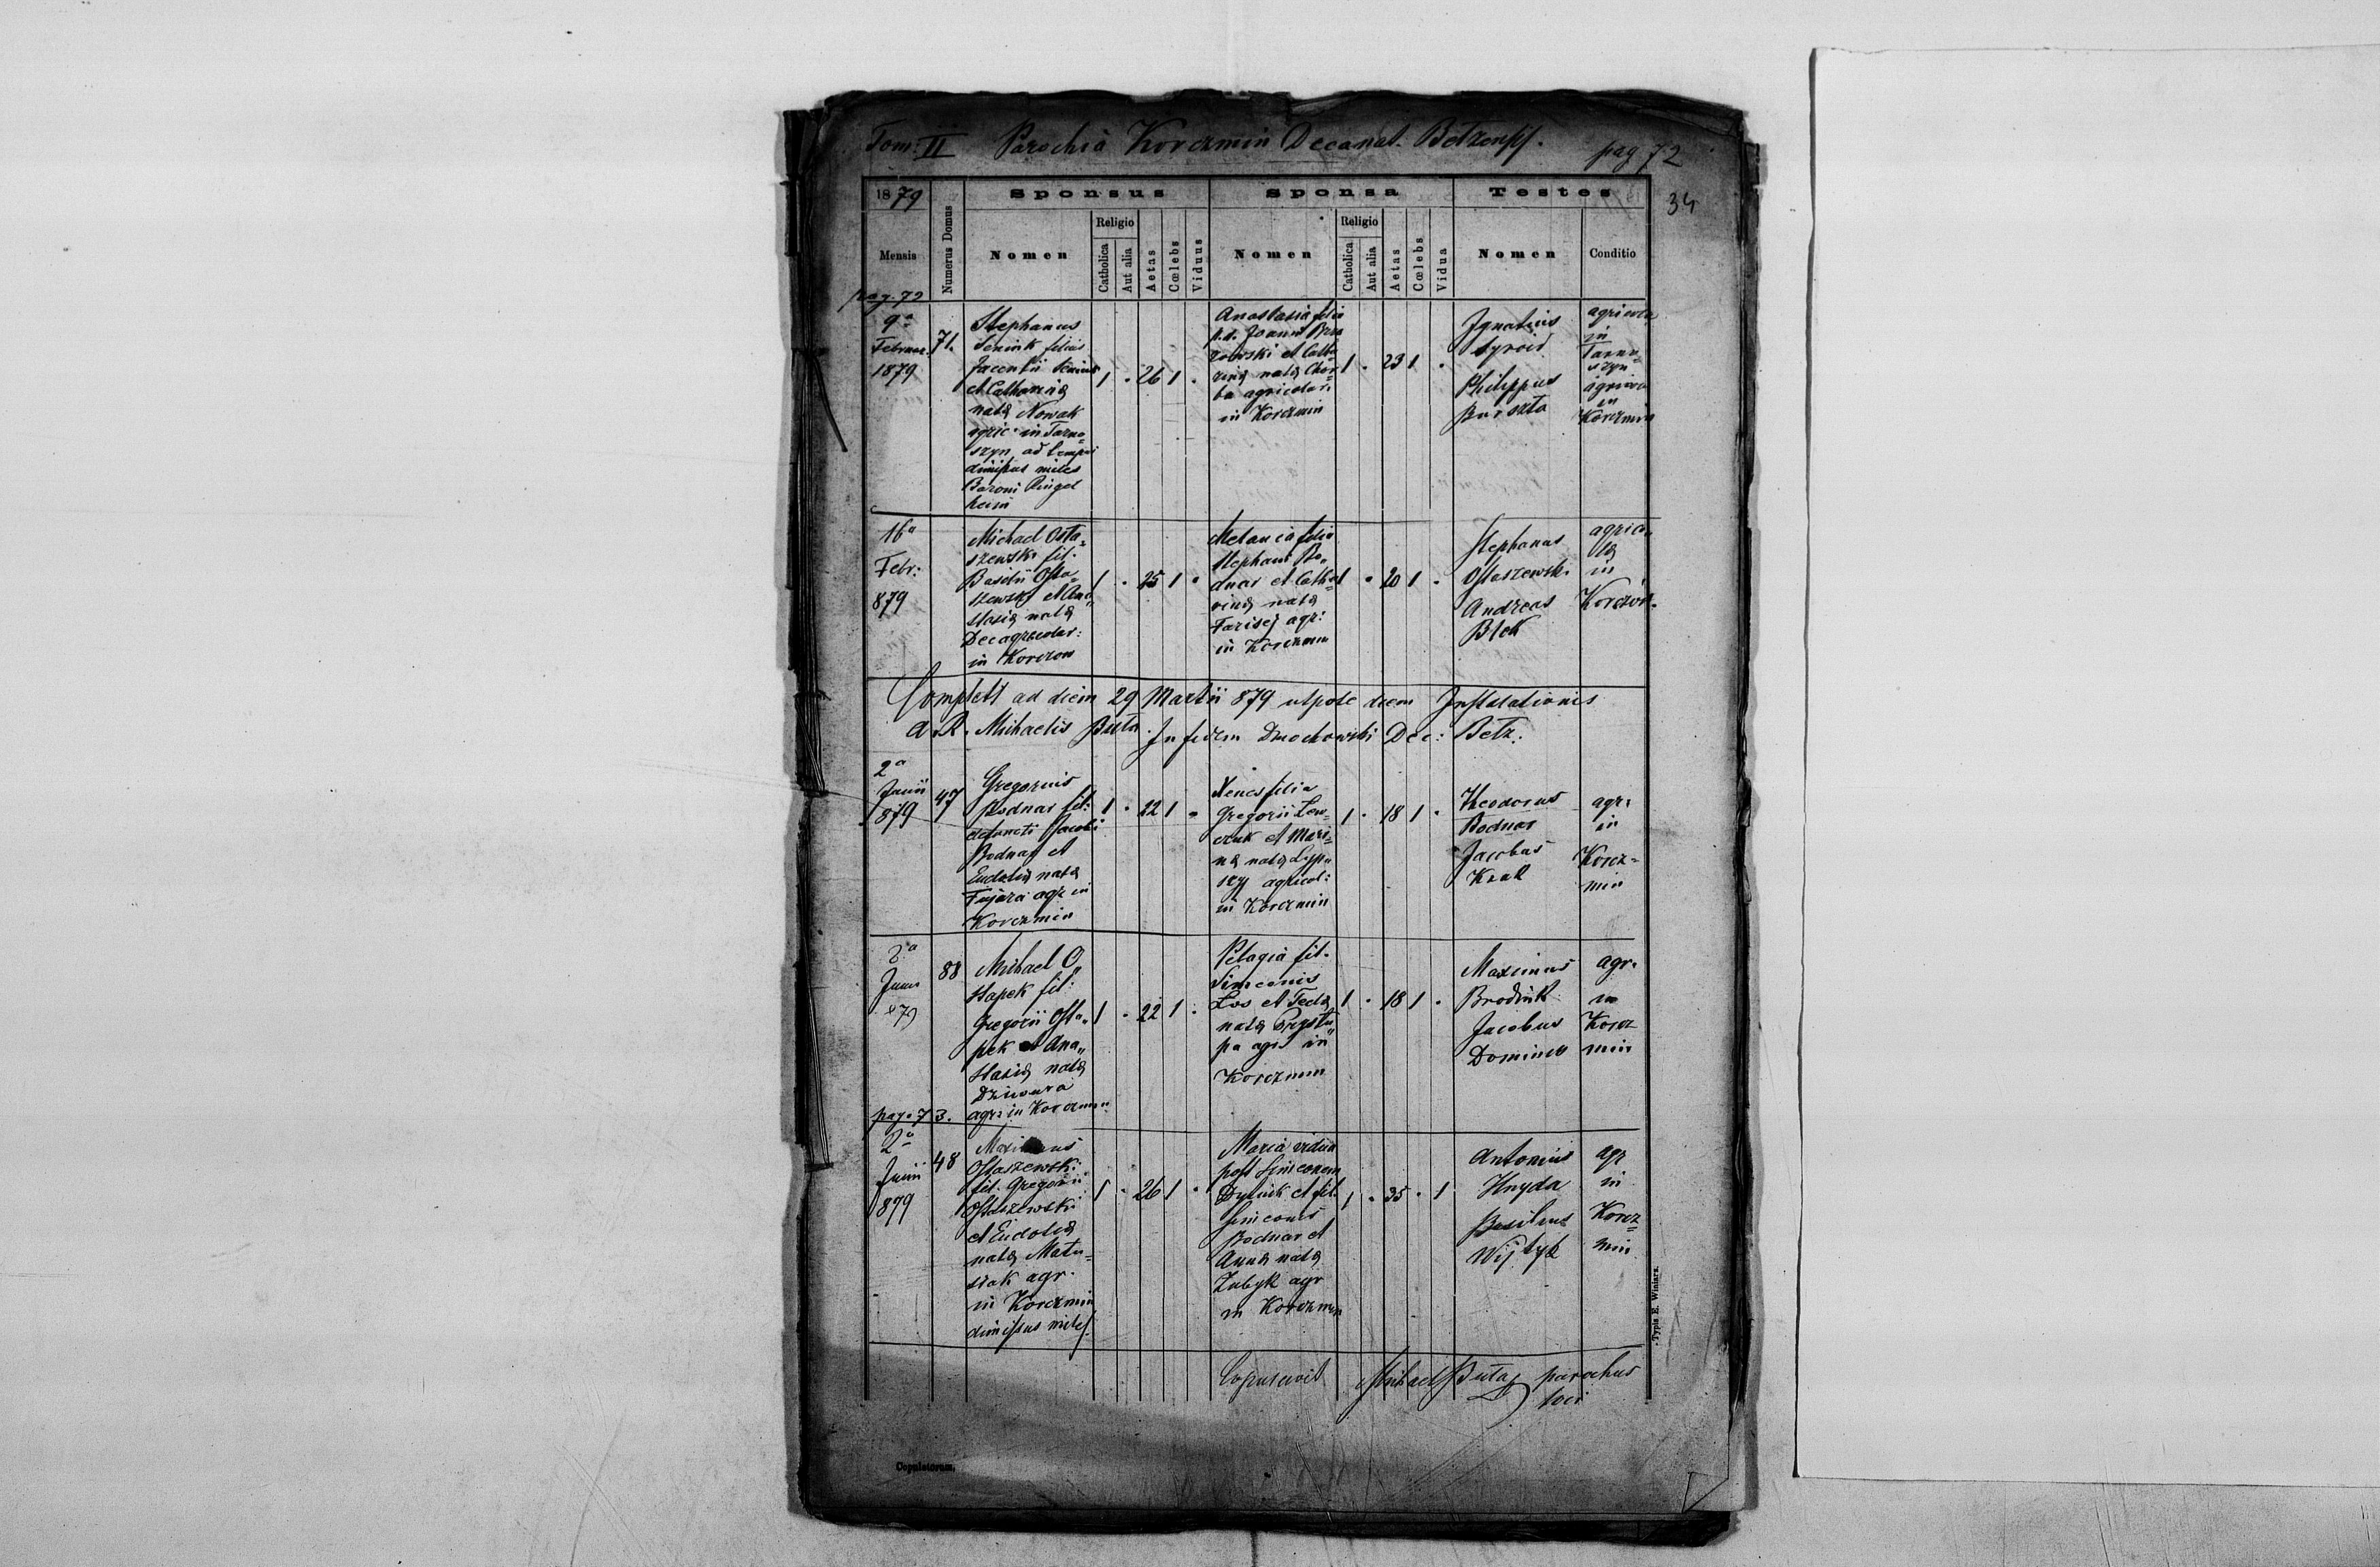 Tom: II Parochia Korczmin Decanat. Betzensis. pag 72
34
1879 Sponsus Sponsa Testes
Mensis Numerus Domus Nomen Religio Catholica Aut alia Aetas Cœlebs Viduus Nomen Religio Catholica Aut alia Aetas Cœlebs Vidua Nomen Conditio
pag. 72
9a
Februar.
1879
71.
Stephanus
Seniuk filius
Jacentii Seniuk
et Catharina
nata Nowak
agric. in Tarno=
szyn, ad tempus
dimissus miles
Baroni Ringel
heim
1 . 26 1 .
Anastasia filia
p.d. Joanni Brza
zowski et Catha
rina nata Chor
ba agricolar:
in Korczmin
1 . 23 1 .
Ignatius
Philippus
Burszta
agricola
in
Tarno=
szyn
agricola
in
Korczmin
16a
Febr:
879
Michael Osta=
szewski fil.
Basilii Osta=
szewski et Ana
stasia nata
Dec agricolar:
in Korczow
1 . 25 1 .
Melania filia
Stephani Bo=
dnar et Catha
rina nata
Farisej agr:
in Korczmin
1 . 20 1 .
Stephanus
Ostaszewski
Andreas
Btek
agrico=
la
in
Korczow.
Complet: ad diem 29 Martii 879 utpote diem Installationis
a R. Michaelis Buta. In fidem Dmochowski Dec: Betz.
2a
Junii
879
47
Gregorius
Bodnar fil:
defuncti Jacobi
Bodnar et
Eudokia nata
Fujara agr in
Korczmin
1 . 22 1 .
Xenia filia
Gregorii Lew=
czuk et Mari=
na nata Lypa
agricol:
in Korczmin
1 . 18 1 .
Theodorus
Bodnar
Jacobus
Kzak
agr:
in
Korcz=
min
2a
Junii
879
88
Michael O
stapek fil:
Gregorii Osta„
pek et Ana„
stasia nata
Dziwura
agr: in Korczmin
1 . 22 1 .
Pelagia fil.
Simeonis
Los et Tecla
nata Prystu
pa agr. in
Korczmin
1 . 18 1 .
Maximus
Jacobus
agr.
in
Korcz
min
pag. 73.
2a
Junii
879
48
Maximus
Ostaszewski
fil. Gregorii
Ostaszewski
et Eudokia
nata Matu=
siak agr.
in Korczmin
dimissus miles.
1 . 26 1 .
Maria vidua
post Simeonem
Dyniuk et fil.
Simeonis
Bodnar et
Anna nata
Zubyk agr
in Korczmin
1 . 35 . 1
Antonius
Hnyda
Basilius
Wijtyk
agr
in
Korcz
min
Copulavit Michael Buta parochus
loci
Typis E. Winiarz.
Copulatorum.